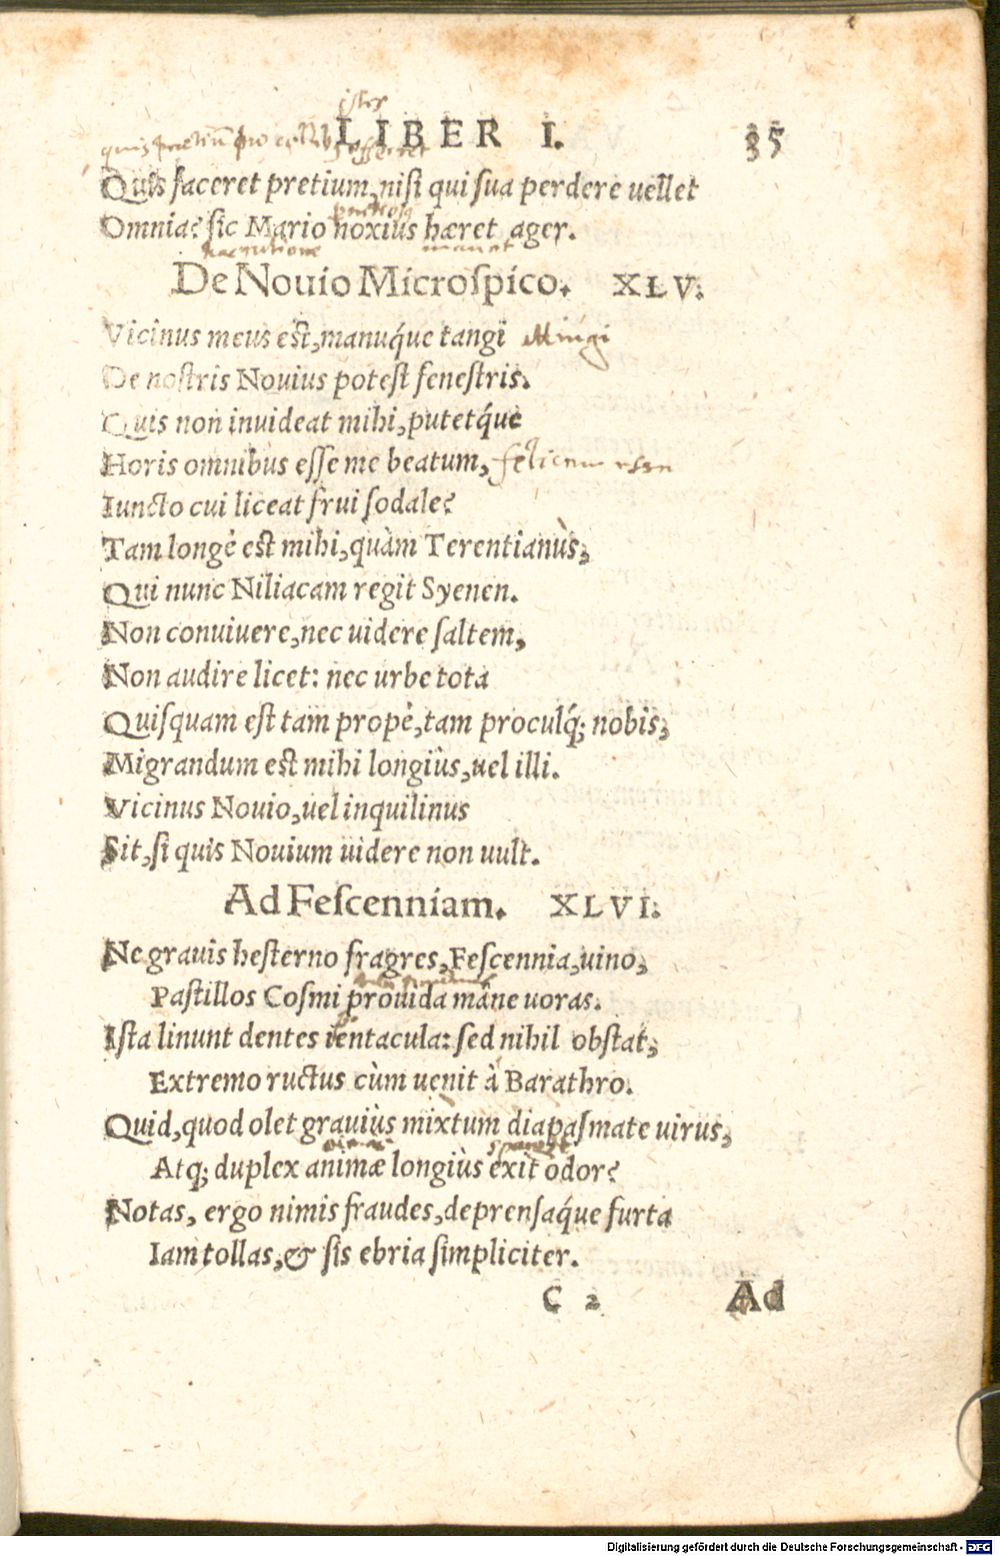 LIBER I. 35
Quis faceret pretium, nisi qui sua perdere uellet
Omnia? sic Mario noxius hæret ager.
manet
De Nouio Microspico. XLV.
Vicinus meus est, manuq́ue tangi
De nostris Nouius potest fenestris.
Quis non inuideat mihi, putetq́ue
Horis omnibus esse me beatum, felicem esse
Iuncto cui liceat frui sodale?
Tam longè est mihi, quàm Terentianùs,
Qui nunc Niliacam regit Syenen.
Non conuiuere, nec uidere saltem,
Non audire licet: nec urbe tota
Quisquam est tam propè, tam proculq́; nobis,
Migrandum est mihi longiùs, uel illi.
Vicinus Nouio, uel inquilinus
Sit, si quis Nouium uidere non uult.
Ad Fescenniam. XLVI.
Ne grauis hesterno fragres, Fescennia, uino,
Pastillos Cosmi prouida mane uoras.
Ista linunt dentes ientacula: sed nihil obstat,
Extremo ructus cùm uenit à Barathro.
Quid, quod olet grauiùs mixtum diapasmate uirus,
Atq; duplex animæ longiùs exit odor?
Notas, ergo nimis fraudes, deprensaq́ue furta
Iam tollas, & sis ebria simpliciter.
C 2 Ad
Digitalisierung gefördert durch die Deutsche Forschungsgemeinschaft - DFG